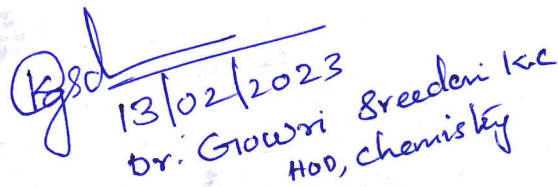 13/02/2023
Dr. Gowri Sreedevi K.C
HOD, Chemistry